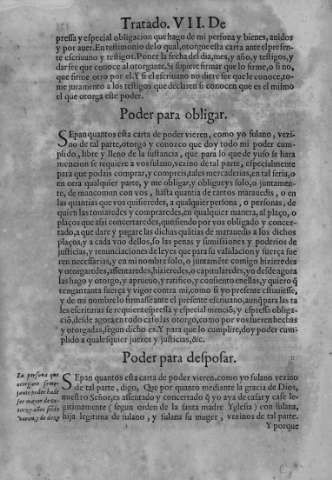 Tratado. VII. De
pressa y especial obligacion que hago de mi persona y bienes, auidos
y por auer. En testimonio de lo qual, otorgue esta carta ante el presen-
te escriuano y testigos. Poner la fecha del dia, mes, y año, y testigos, y
dar fee que conoce al otorgante. Si supiere firmar que lo firme, o si no,
que firme otro por el. Y si el escriuano no diere fee que le conoce, to-
me juramento a los testigos que declaren si conocen que es el mismo
el que otorga este poder.
Poder para obligar.
SEpan quantos esta carta de poder vieren, como yo fulano, vezi-
no de tal parte, otorgo y conozco que doy todo mi poder cum-
plido, libre y lleno de la sustancia, que para lo que de yuso se hara
mencion se requiere a vos fulano, vezino de tal parte, especialmente
para que podais comprar, y compreis, tales mercaderias, en tal feria, o
en otra qualquier parte, y me obligar, y obligueys solo, o juntamen-
te, de mancomun con vos, hasta quantia de tantos marauedis, o en
las quantias que vos quisieredes, a qualquier persona, o personas, de
quien las tomaredes y compraredes, en qualquier manera, al plaço, o
plaços que assi concertaredes, quitiendo por vos obligado y concer-
tado, a que dare y pagare las dichas quãtias de marauedis a los dichos
plaços, y a cada vno dellos, so las penas y sumissiones y poderios de
justicias, y renunciaciones de leyes que para su validacion y fuerça fue
ren necessarias, y en mi nombre solo, o juntamẽte comigo hizieredes
y otorgaredes, assentaredes, hizieredes, o capitularedes, yo desde agora
las hago y otorgo, y aprueuo, y ratifico, y consiento en ellas, y quiero q̃
tengan tanta fuerça y vigor contra mi, como si yo presente estuuiesse,
y de mi nombre lo firmasse ante el presente escriuano, aunq̃ para las ta
les escrituras se requiera espressa y especial mencio, y espessio obliga-
ciõ, desde agora en todo cõsto las otorgo, como por vos fueren hechas
y otorgadas, segun dicho es. Y para que lo cumplire, doy poder cum-
plido a qualesquier juezes y justicias, &c.
Poder para desposar.
La persona que
otorgare seme-
jante poder ha de
ser mayor de
SEpan quantos esta carta de poder vieren, como yo fulano vezino
de tal parte, digo, Que por quanto mediante la gracia de Dios,
nuestro Señor, es assentado y concertado q̃ yo aya de casar y case le-
gitimamente ( segun orden de la santa madre Yglesia ) con fulana,
hija legitima de fulano, y fulana su muger, vezinos de tal parte.
Y porque